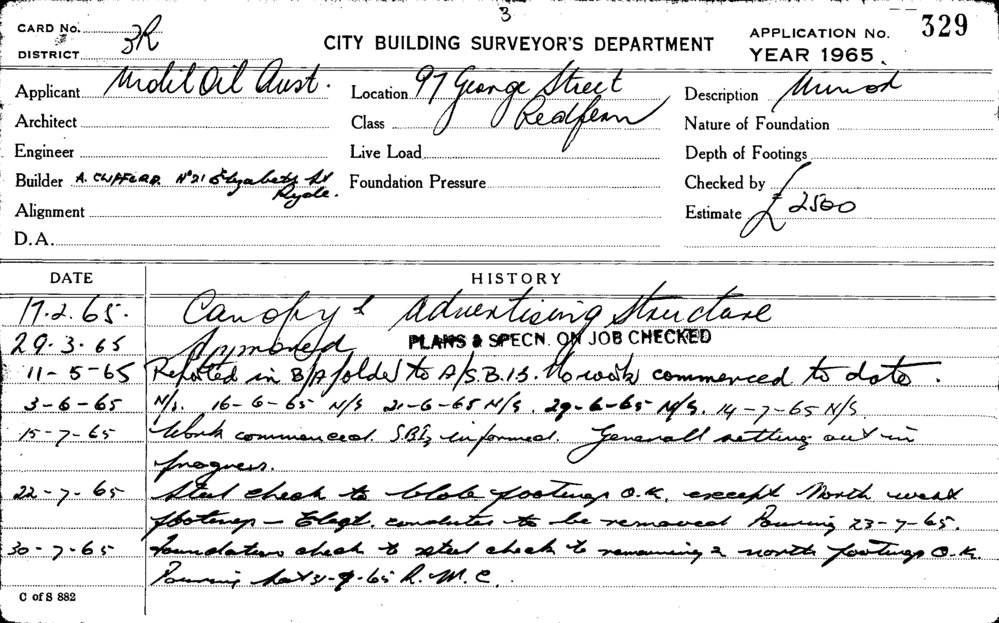 3
CARD No. CITY BUILDING SURVEYOR'S DEPARTMENT APPLICATION No. 329
DISTRICT 3R YEAR 1965.
Applicant Mobil Oil Aust. Location 97 George Street Description Minor
Architect Class Redfern Nature of Foundation
Engineer Live Load Depth of Footings
Builder A. CLIFFORD. No 21 Elizabeth St Foundation Pressure Checked by
Ryde.
Alignment Estimate £ 2500
D.A.
DATE HISTORY
17.2.65. Canopy & Advertising Structure
29.3.65 Approved PLANS & SPECN. ON JOB CHECKED
11-5-65 Reported in B/A folder to A/S.B.I.3. No work commenced to date.
3-6-65 N/S. 16-6-65 N/S 21-6-65 N/S. 29-6-65 N/S. 14-7-65 N/S.
15-7-65 Work commenced. informed. Generall setting out in
progress.
22-7-65 Steel check to footings O.K. except North west
footings - Elect. conduites to be removed Pouring 23-7-65.
30-7-65 Foundation check & steel check to remaining 2 north footings O.K.
Pouring R.M.C.
C of S 882